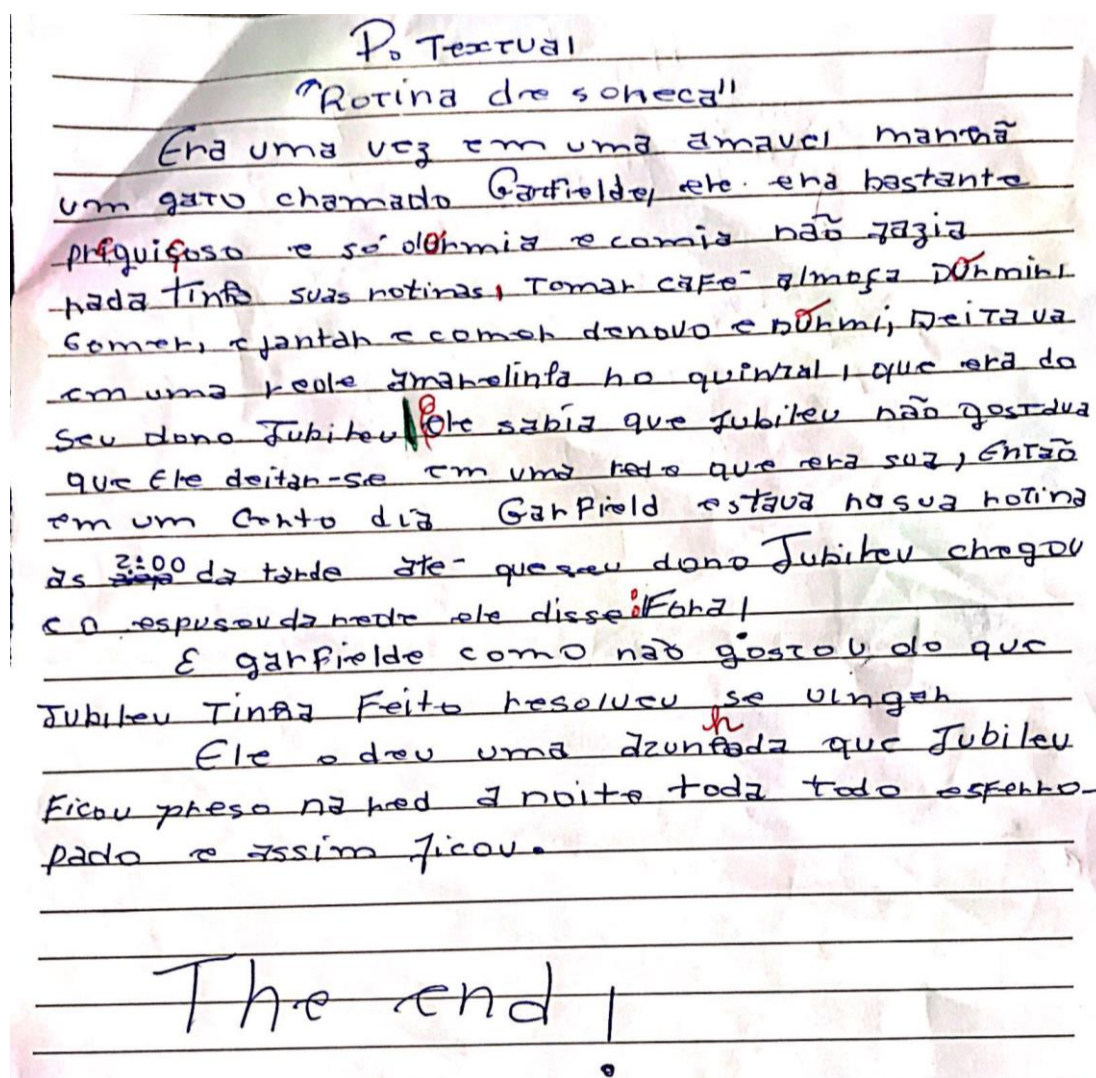 P. Textual
"Rotina de soneca"
Era uma vez em uma amavel manhã
um gato chamado Garfielde, ele. era bastante
preguiçoso e só dormia e comia não fazia
nada tinha suas rotinas, Tomar café almoça Dormir,
Comer, e jantar e comer denovo e Dormi, Deitava
em uma rede amarelinha no quintal, que era do
seu dono Jubileu ele sabia que Jubileu não gostava
que Ele deitar-se em uma rede que era sua, Então
em um Certo dia Garfield estava na sua rotina
às 2:00 da tarde até que seu dono Jubileu chegou
e o espusou da rede ele disse: Fora!
E garfielde como não gostou do que
Jubileu Tinha Feito resolveu se vingar
Ele o deu uma azunhada que Jubileu
Ficou preso na red a noite toda todo esferro-
pado e assim ficou.
The end!